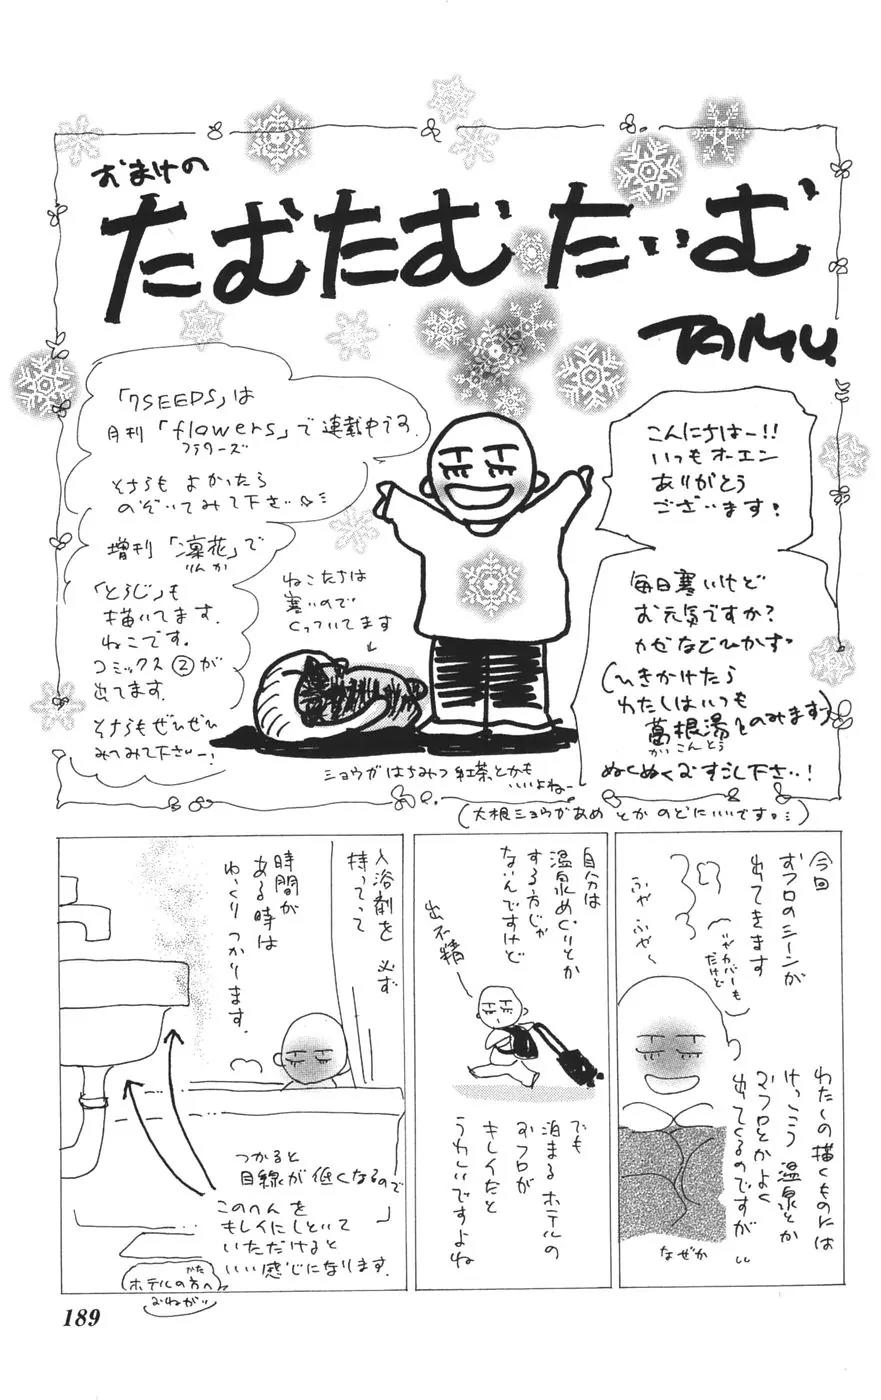 おまけの
たむたむたいむ
TAMU.
こんにちはー!!
いつもオーエン
ありがとう
ございます!
毎日寒いけど
お元気ですか?
カゼなどひかず。
(ひきかけたら
わたしはいつも
葛根湯とのみます)
かっこんとう
ぬくぬくおすごし下さい!
「7SEEDS」は
月刊「flowers」で連載中です.
フラワーズ
そちらも よかったら
のぞいてみて下さい
増刊「凛花」で
りんか
「とらじ」も
描いてます.
ねこです.
コミックス②が
出てます.
そちらもぜひぜひ
みてみて下さいー!
ねこたちは
寒いので
くっついてます
ショウガはちみつ紅茶とかも
いいよねー
(大根ショウガあめ とか のどにいいです。)
今回
おフロのシーンが
出てきます
(カバーも
だけど)
ふや ふや〜
わたしの描くものには
けっこう 温泉とか
おフロとかよく
出てくるのですが
なぜか
自分は
温泉めぐりとか
する方じゃ
ないんですけど
出不精
でも
泊まるホテルの
おフロが
キレイだと
うれしいですよね
入浴剤を 必ず
持ってって
時間が
ある時は
ゆっくりつかります.
つかると
目線が低くなるので
このへんを
キレイにしといて
いただけると
いい感じになります.
ホテルの方へ
がた
おねがい
189